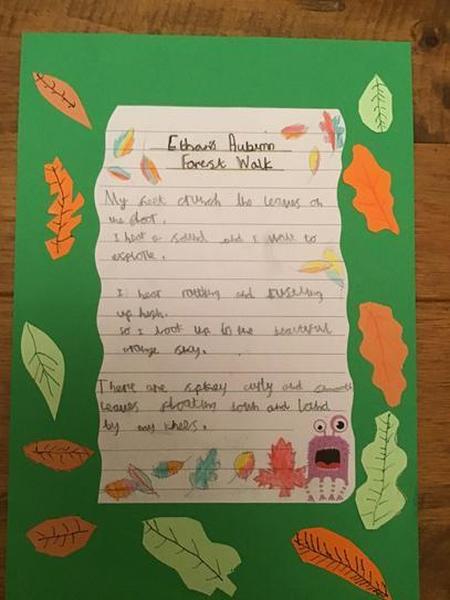 Ethan's Autumn
Forest Walk
My feet crunch the leaves on
the floor.
I hear a sound and I want to
explore.
I hear rattling and rustling
up high.
so I look up to the beautiful
orange sky.
There are spikey curly and smooth
leaves floating down and land
by my knees.